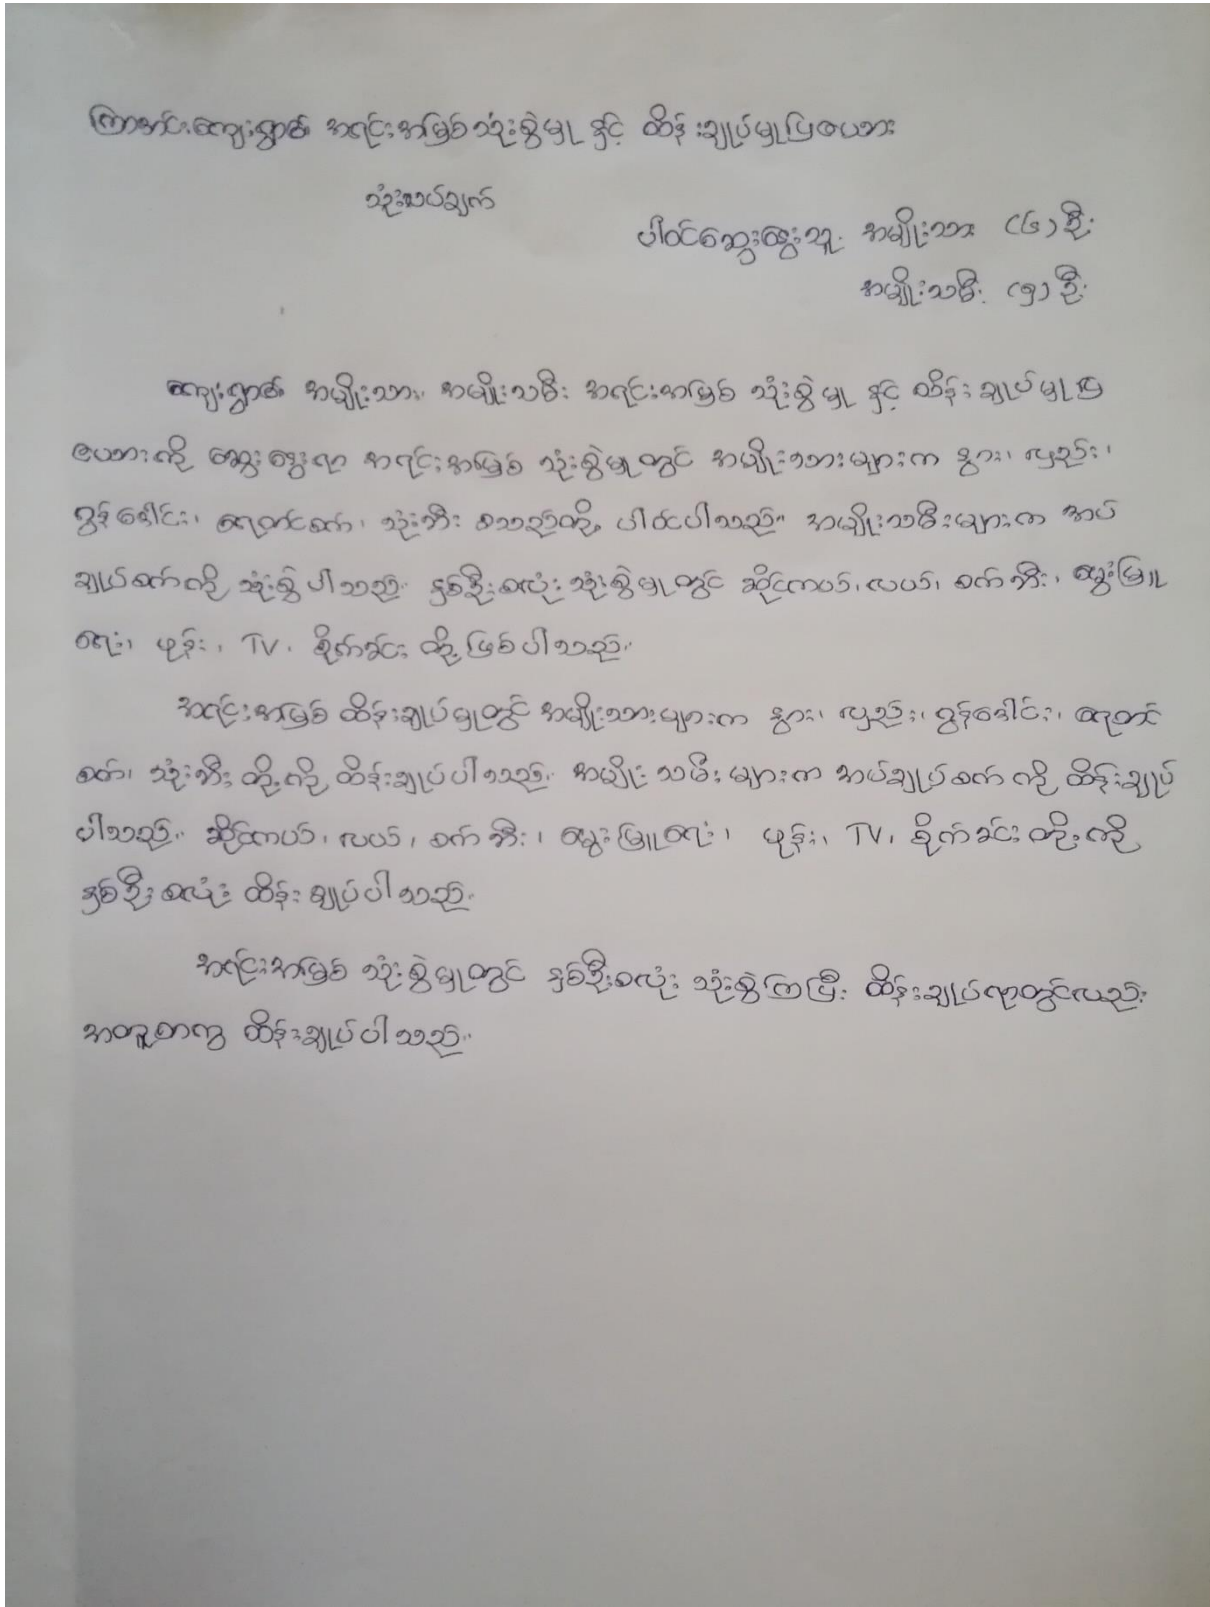 ကြာအင်းကျေးရွာ၏ အရင်းအမြစ်သုံးစွဲမှု နှင့် ထိန်းချုပ်မှုပြဇယား
သုံးသပ်ချက်
ပါဝင်ဆွေးနွေးသူ အမျိုးသား (၆) ဦး
အမျိုးသမီး (၅) ဦး
ကျေးရွာ၏ အမျိုးသား၊ အမျိုးသမီး အရင်းအမြစ် သုံးစွဲမှု နှင့် ထိန်းချုပ်မှုပြ
ဇယားကို ဆွေးနွေးရာ အရင်းအမြစ် သုံးစွဲမှုတွင် အမျိုးသားများက နွား၊ လှည်း၊
ဂွန်ဒေါင်း၊ ရေတင်စက်၊ သုံးဘီး စသည်တို့ ပါဝင်ပါသည်။ အမျိုးသမီးများက အပ်
ချုပ်စက်ကို သုံးစွဲပါသည်။ နှစ်ဦးစလုံးသုံးစွဲမှုတွင် ဆိုင်ကယ်၊ လယ်၊ စက်ဘီး၊ မွေးမြူ
ရေး၊ ဖုန်း၊ TV၊ စိုက်ခင်း တို့ ဖြစ်ပါသည်။
အရင်းအမြစ် ထိန်းချုပ်မှုတွင် အမျိုးသားများက နွား၊ လှည်း၊ ဂွန်ဒေါင်း၊ ရေတင်
စက်၊ သုံးဘီး တို့ကို ထိန်းချုပ်ပါသည်။ အမျိုးသမီးများက အပ်ချုပ်စက်ကို ထိန်းချုပ်
ပါသည်။ ဆိုင်ကယ်၊ လယ်၊ စက်ဘီး၊ မွေးမြူရေး၊ ဖုန်း၊ TV၊ စိုက်ခင်းတို့ကို
နှစ်ဦးစလုံး ထိန်းချုပ်ပါသည်။
အရင်းအမြစ် သုံးစွဲမှုတွင် နှစ်ဦးစလုံး သုံးစွဲကြပြီး ထိန်းချုပ်ရာတွင်လည်း
အတူတကွ ထိန်းချုပ်ပါသည်။